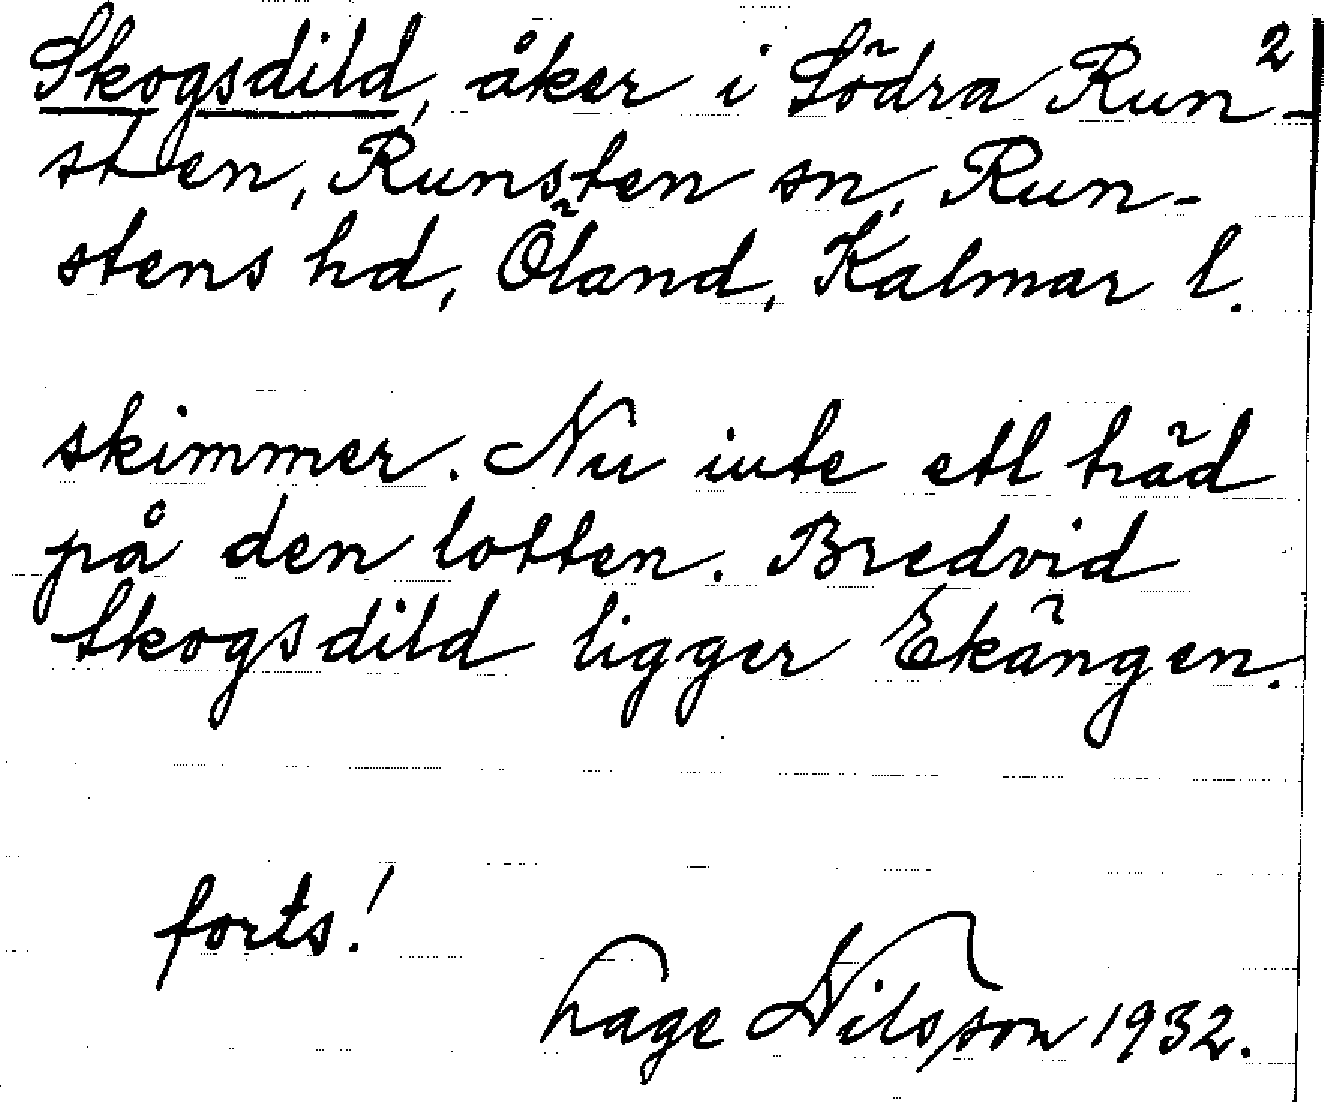 2
Skogsdild, åker i Södra Run-
sten, Runsten sn, Run-
stens hd, Öland, Kalmar l.
skimmer. Nu inte ett träd
på den lotten. Bredvid
Skogsdild ligger Ekängen.
forts!
Tage Nilsson 1932.